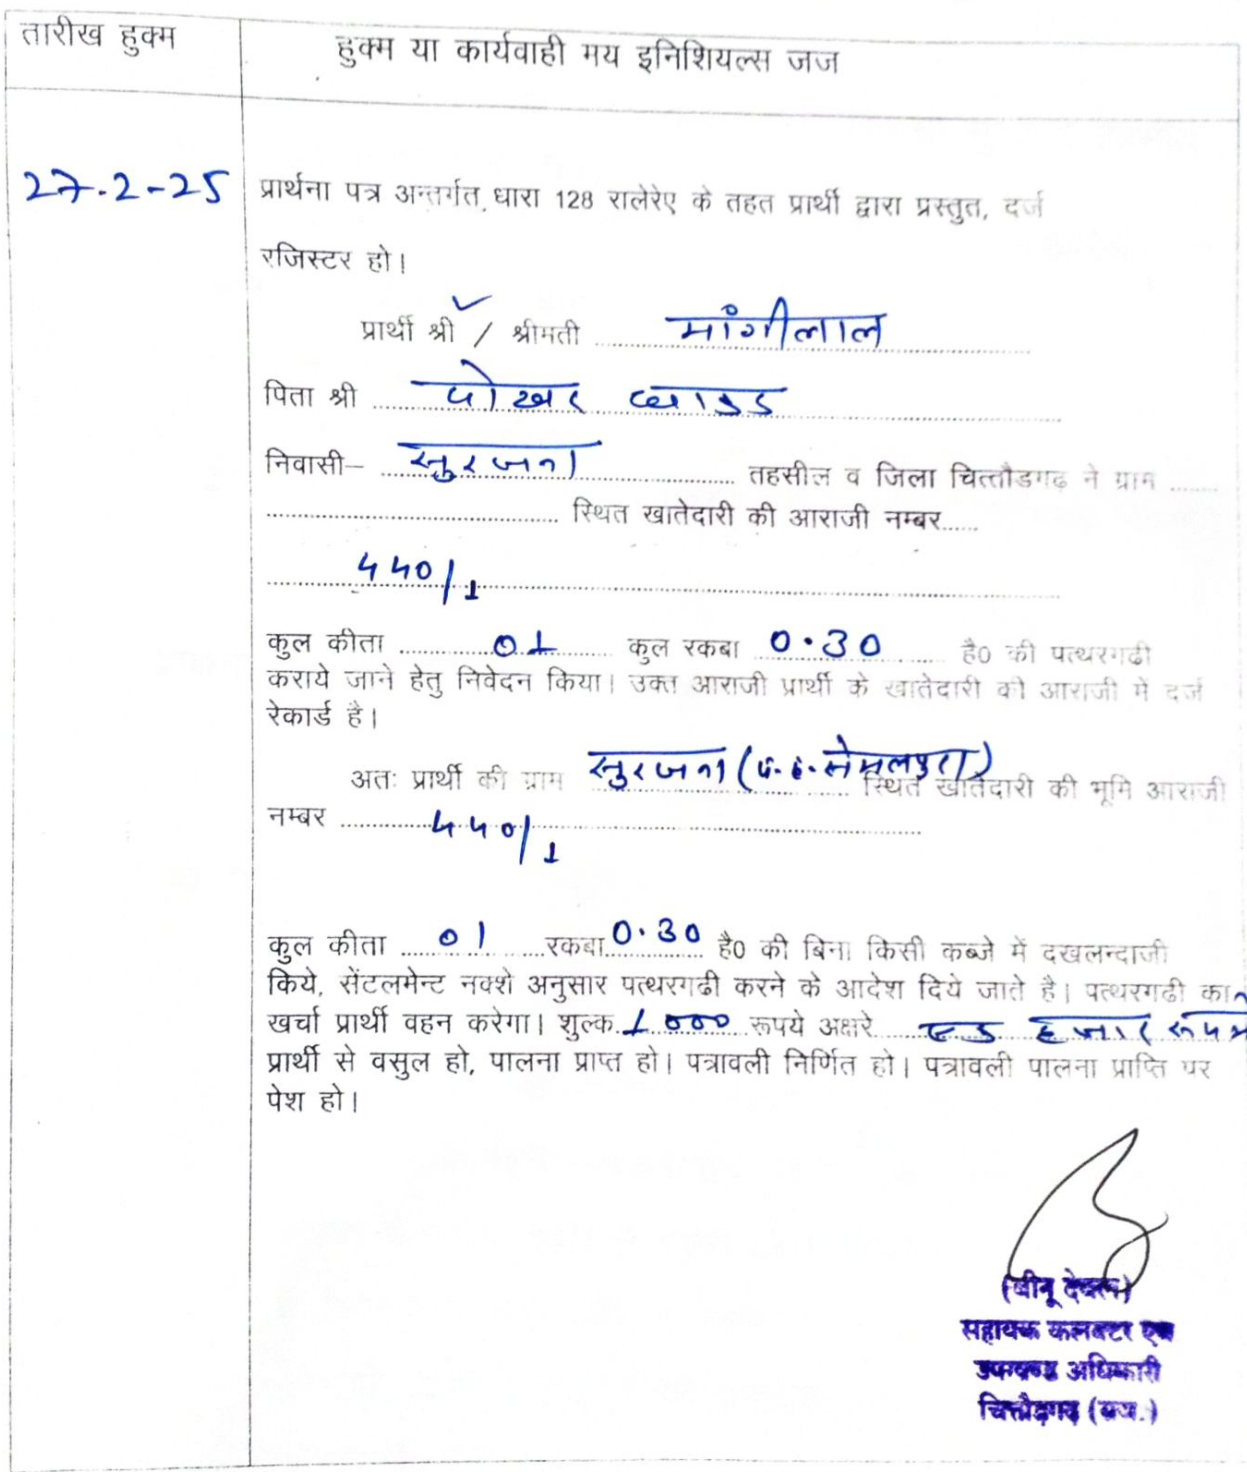 तारीख हुक्म
हुक्म या कार्यवाही मय इनिशियल्स जज
27-2-25
प्रार्थना पत्र अन्तर्गत धारा 128 रालेरेए के तहत प्रार्थी द्वारा प्रस्तुत, दर्ज
रजिस्टर हो।
प्रार्थी श्री ✓ / श्रीमती मांगीलाल
पिता श्री पोखर
निवासी– सुरजना तहसील व जिला चित्तौडगढ ने ग्राम
स्थित खातेदारी की आराजी नम्बर
440/1
कुल कीता 01 कुल रकबा 0.30 है0 की पत्थरगढी
कराये जाने हेतु निवेदन किया। उक्त आराजी प्रार्थी के खातेदारी की आराजी में दर्ज
रेकार्ड है।
अतः प्रार्थी की ग्राम सुरजना (प.ह. सेमलपुरा) स्थित खातेदारी की भूमि आराजी
नम्बर 440/1
कुल कीता 01 रकबा 0.30 है0 की बिना किसी कब्जे में दखलन्दाजी
किये, सेंटलमेन्ट नक्शे अनुसार पत्थरगढी करने के आदेश दिये जाते है। पत्थरगढी का
खर्चा प्रार्थी वहन करेगा। शुल्क 1000 रूपये अक्षरे एक हजार रूपये
प्रार्थी से वसुल हो, पालना प्राप्त हो। पत्रावली निर्णित हो। पत्रावली पालना प्राप्ति पर
पेश हो।
(बीनू देवल)
सहायक कलक्टर एवं
उपखण्ड अधिकारी
चित्तौड़गढ़ (राज.)